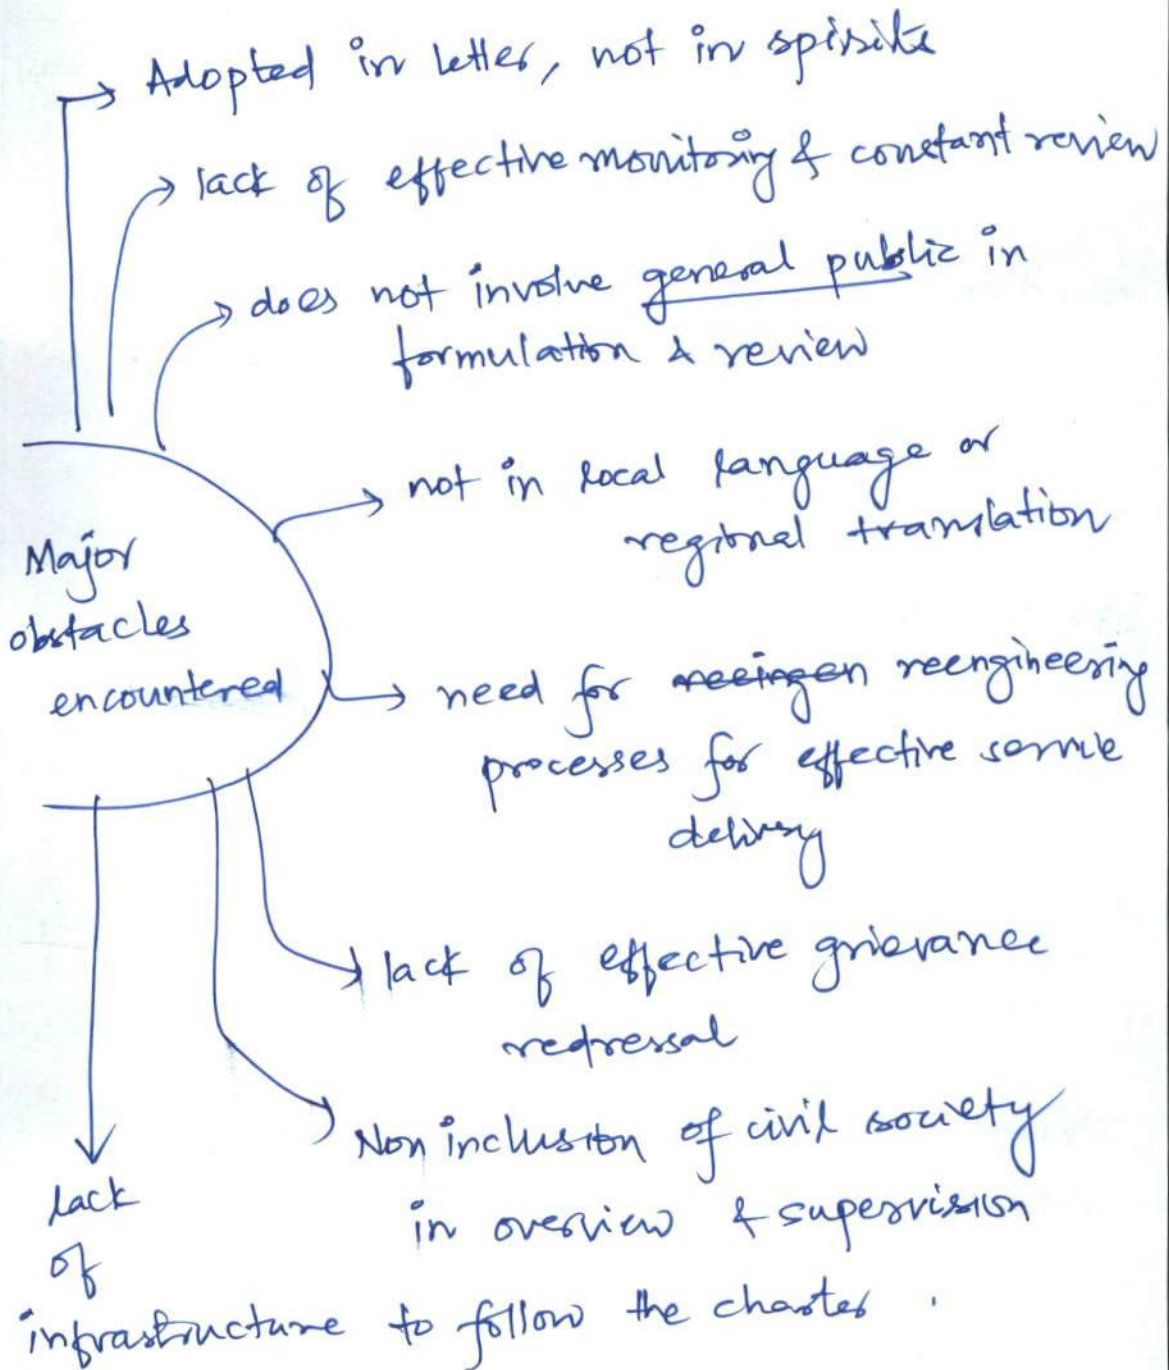 Adopted in letter, not in spirits
lack of effective monitoring & constant review
does not involve general public in
formulation & review
not in local language or
regional translation
Major
obstacles
encountered
need for reengineering
processes for effective service
delivery
lack of effective grievance
redressal
Non inclusion of civil society
in overview & supervision
lack
of
infrastructure to follow the charter.